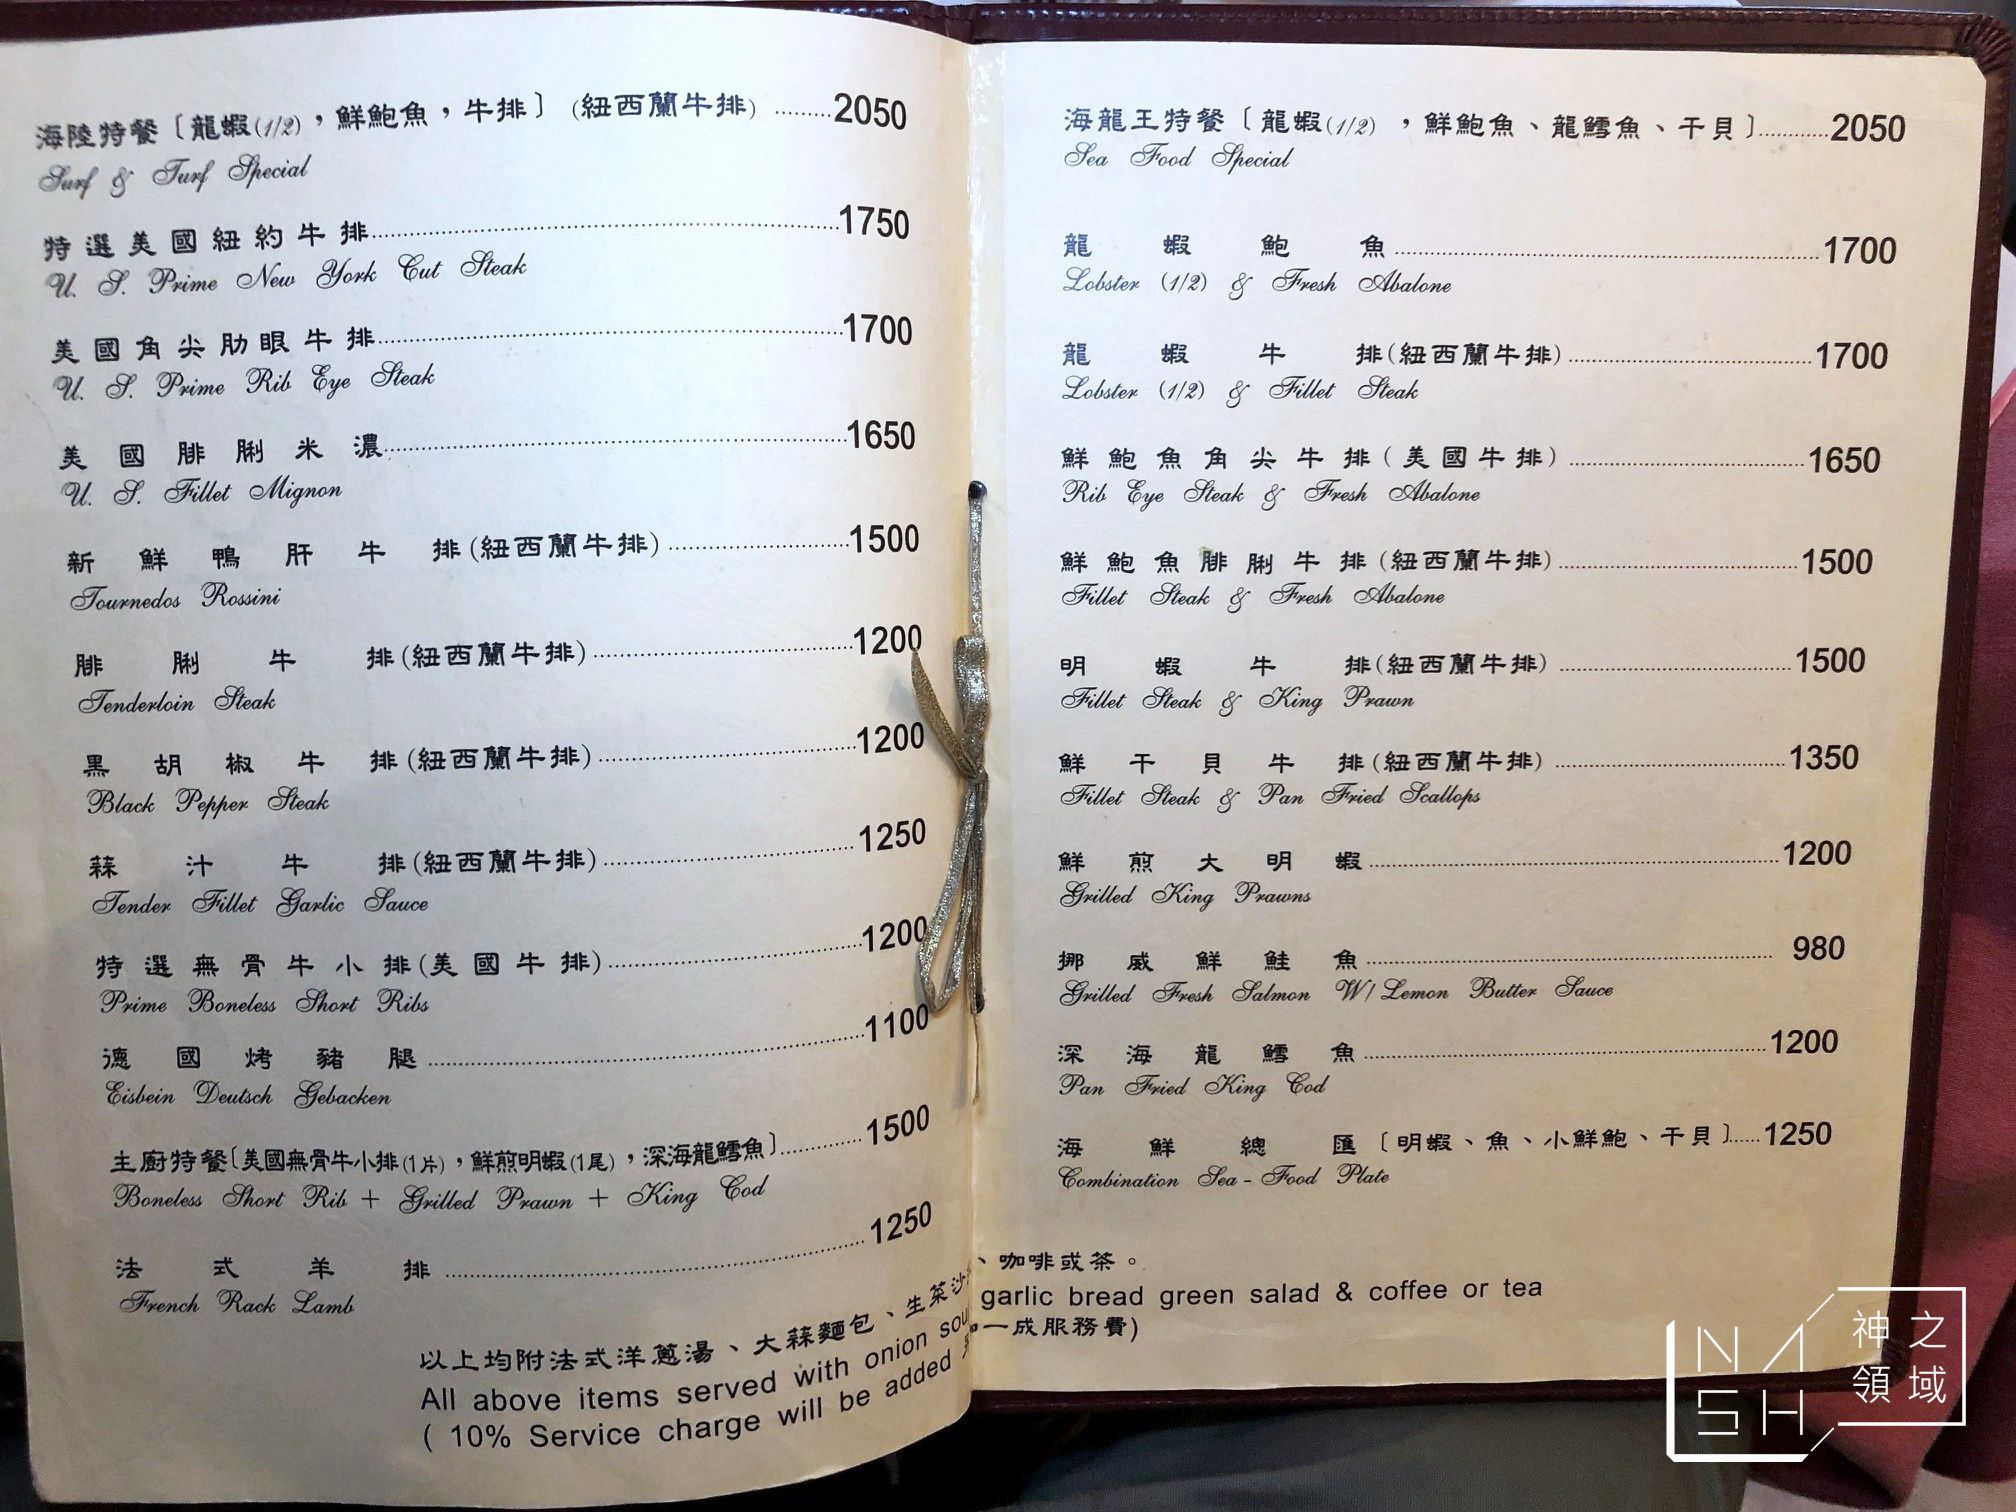 海陸特餐〔龍蝦(1/2)，鮮鮑魚，牛排〕(紐西蘭牛排) .........2050
Surf & Turf Special
特選美國紐約牛排......1750
U. S. Prime New York Cut Steak
美國角尖肋眼牛排......1700
U. S. Prime Rib Eye Steak
美國腓脷米濃......1650
U. S. Fillet Mignon
新鮮鴨肝牛排(紐西蘭牛排)......1500
Tournedos Rossini
腓脷牛排(紐西蘭牛排)......1200
Tenderloin Steak
黑胡椒牛排(紐西蘭牛排)......1200
Black Pepper Steak
蒜汁牛排(紐西蘭牛排)......1250
Tender Fillet Garlic Sauce
特選無骨牛小排(美國牛排)......1200
Prime Boneless Short Ribs
德國烤豬腿......1100
Eisbein Deutsch Gebacken
主廚特餐〔美國無骨牛小排(1片)，鮮煎明蝦(1尾)，深海龍鱈魚〕......1500
Boneless Short Rib + Grilled Prawn + King Cod
法式羊排......1250
French Rack Lamb
以上均附法式洋蔥湯、大蒜麵包、生菜沙
All above items served with onion sou
( 10% Service charge will be added
海龍王特餐〔龍蝦(1/2)，鮮鮑魚、龍鱈魚、干貝〕......2050
Sea Food Special
龍蝦鮑魚......1700
Lobster (1/2) & Fresh Abalone
龍蝦牛排(紐西蘭牛排)......1700
Lobster (1/2) & Fillet Steak
鮮鮑魚角尖牛排(美國牛排)......1650
Rib Eye Steak & Fresh Abalone
鮮鮑魚腓脷牛排(紐西蘭牛排)......1500
Fillet Steak & Fresh Abalone
明蝦牛排(紐西蘭牛排)......1500
Fillet Steak & King Prawn
鮮干貝牛排(紐西蘭牛排)......1350
Fillet Steak & Pan Fried Scallops
鮮煎大明蝦......1200
Grilled King Prawns
挪威鮮鮭魚......980
Grilled Fresh Salmon W/Lemon Butter Sauce
深海龍鱈魚......1200
Pan Fried King Cod
海鮮總匯〔明蝦、魚、小鮮鮑、干貝〕......1250
Combination Sea-Food Plate
、咖啡或茶。
garlic bread green salad & coffee or tea
一成服務費)
NASH
神之
領域